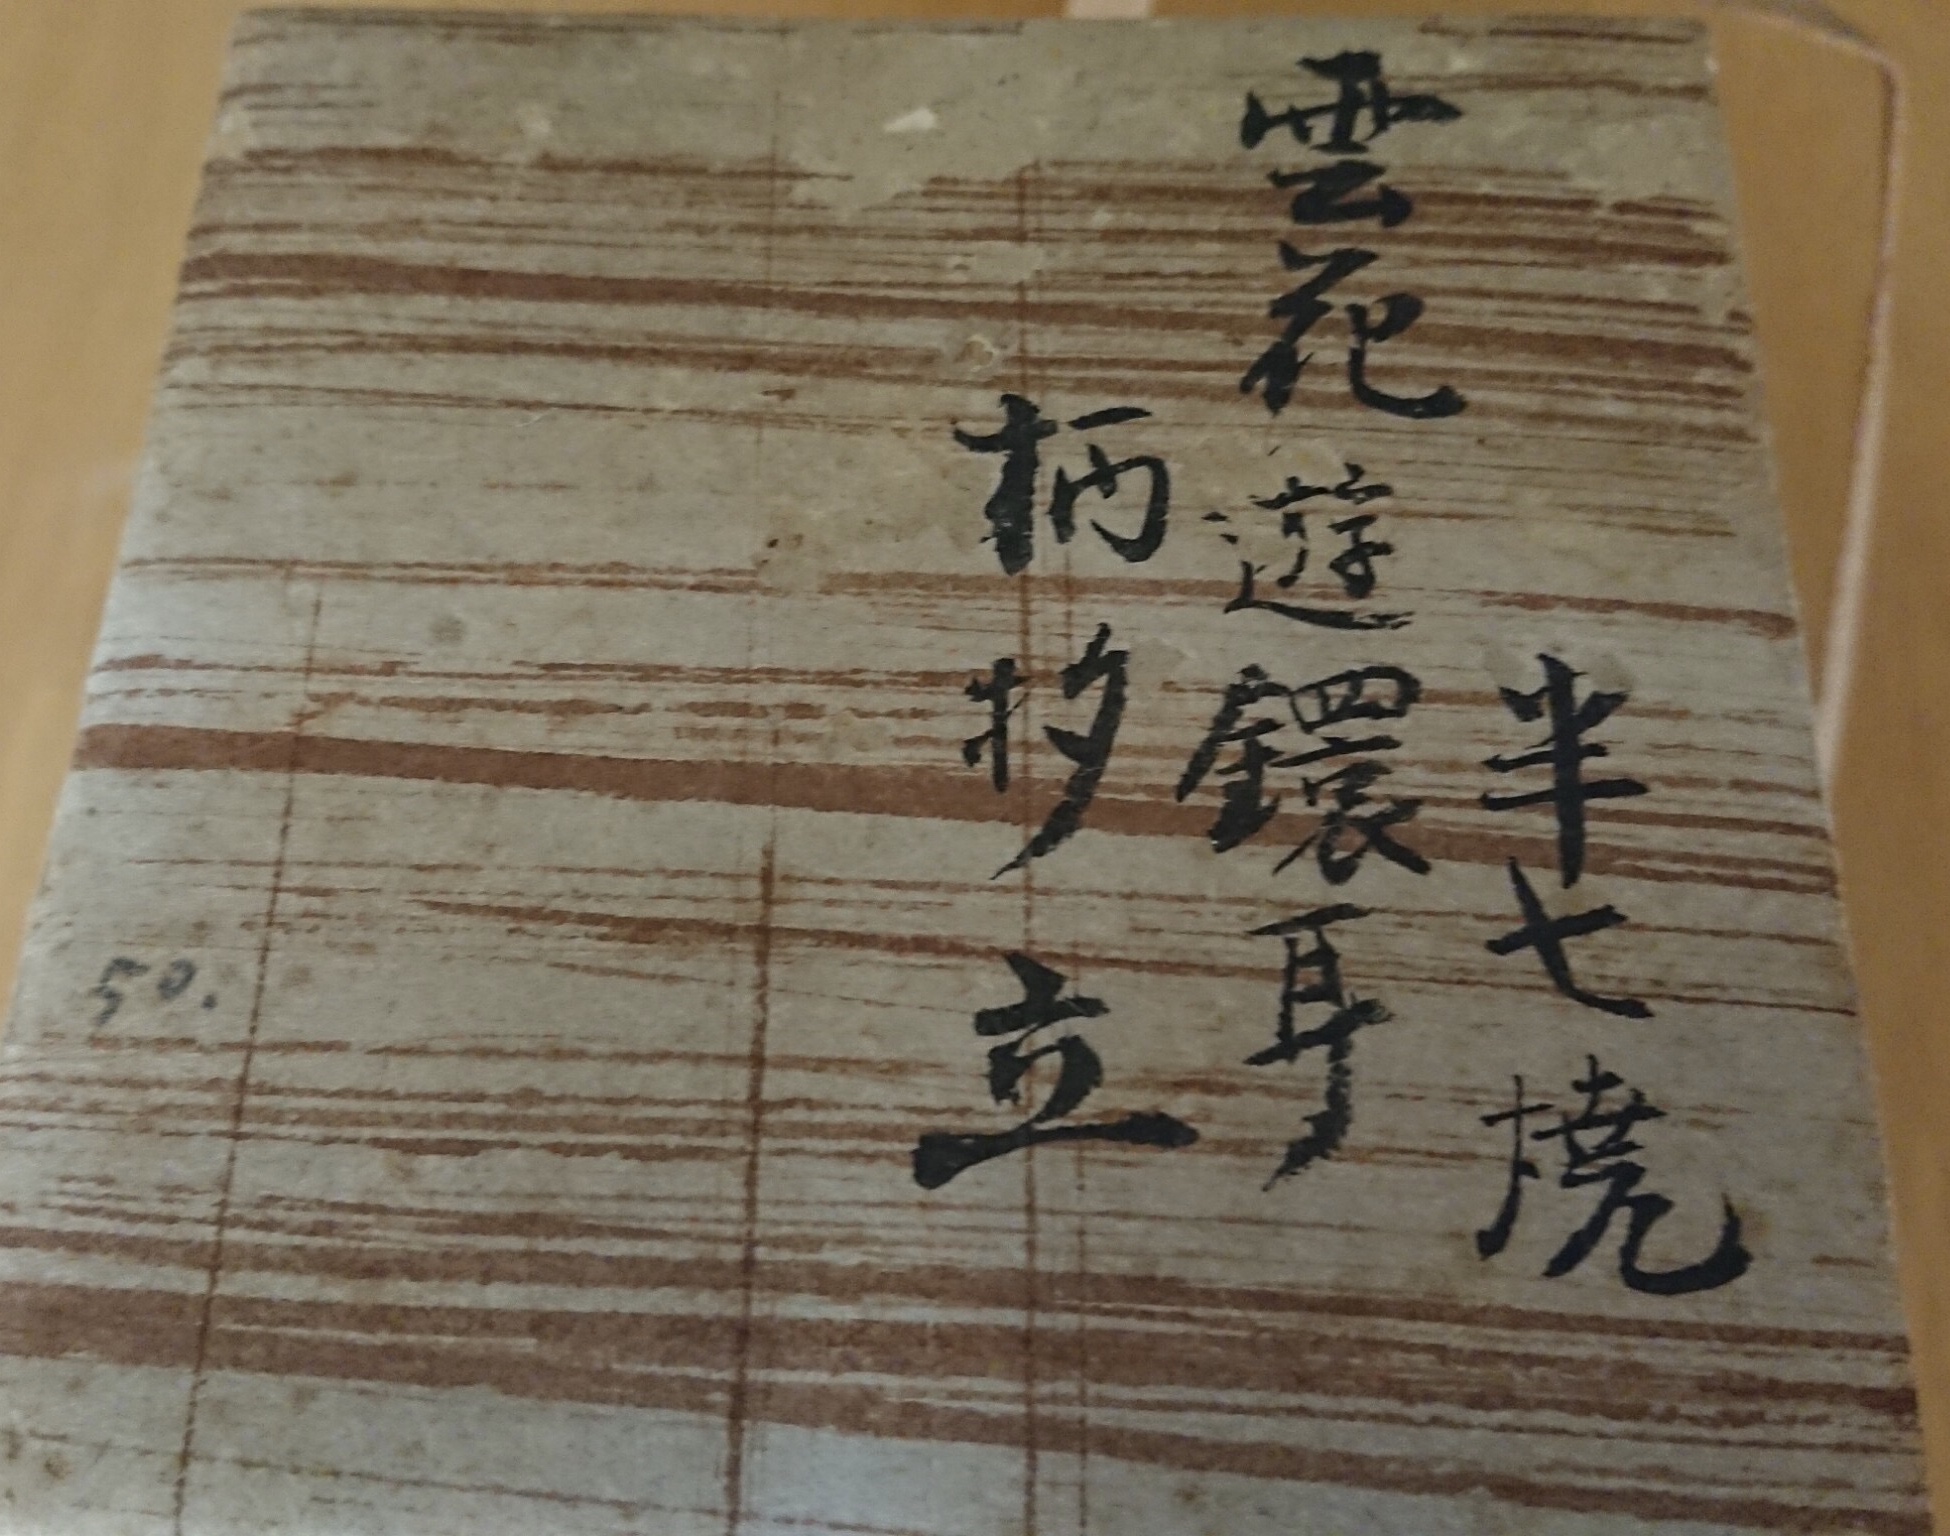 半七焼
雲花遊鐶耳
柄杓立
50.